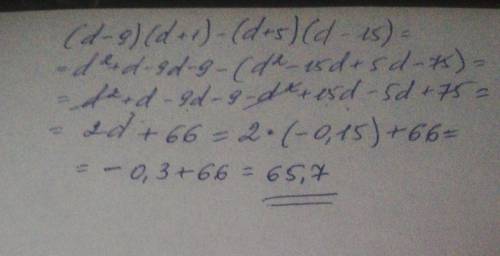 (d-9)(d+1)-(d+5)(d-15)=
=d²+d-9d-9-(d²-15d+5d-75)=
=d²+d-9d-9-d²+15d-5d+75=
=2d+66=2·(-0,15)+66=
=-0,3+66=65,7